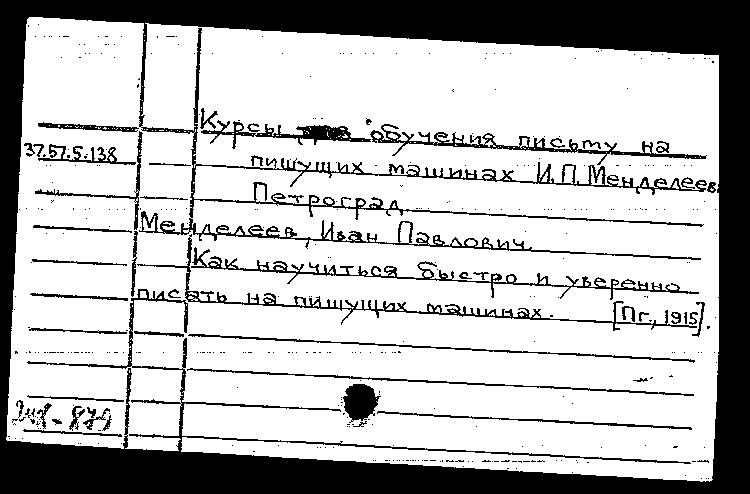 Курсы обучения письму на
37.57.5.138
пишущих машинах И.П.Менделеев.
Петроград
Менделеев, Иван Павлович.
Как научиться быстро и уверенно
писать на пишущих машинах. [Пг., 1915].